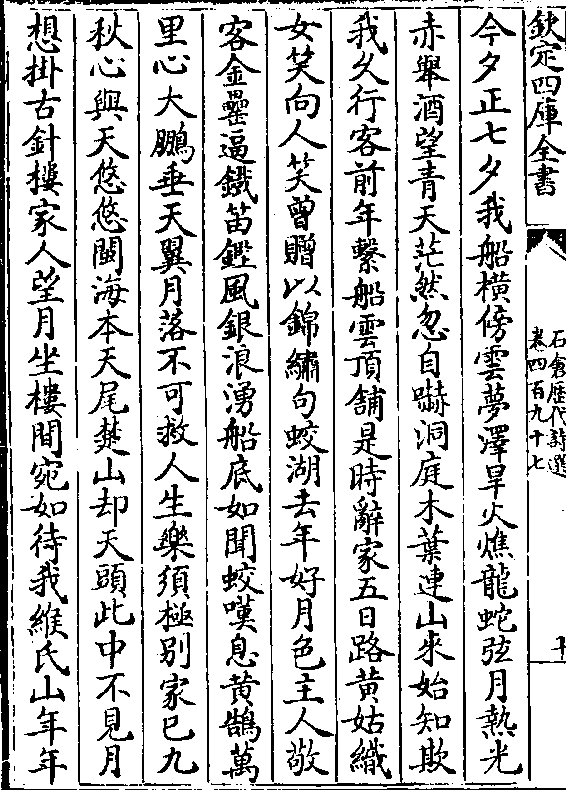 欽定四庫全書
石倉歷代詩選
卷四百九十七
十
今夕正七夕我船橫傍雲夢澤旱火燋龍蛇弦月熱光
赤舉酒望青天茫然忽自嚇洞庭木葉連山來始知欺
我久行客前年繫船雲頂舖是時辭家五日路黃姑織
女笑向人笑曾贈以錦繡句蛟湖去年好月色主人敬
客金罍逼鐵笛鏗風銀浪湧船底如聞蛟嘆息黃鵠萬
里心大鵬垂天翼月落不可救人生樂須極別家已九
秋心與天悠悠閩海本天尾楚山却天頭此中不見月
想掛古針樓家人望月坐樓間宛如待我緱氏山年年